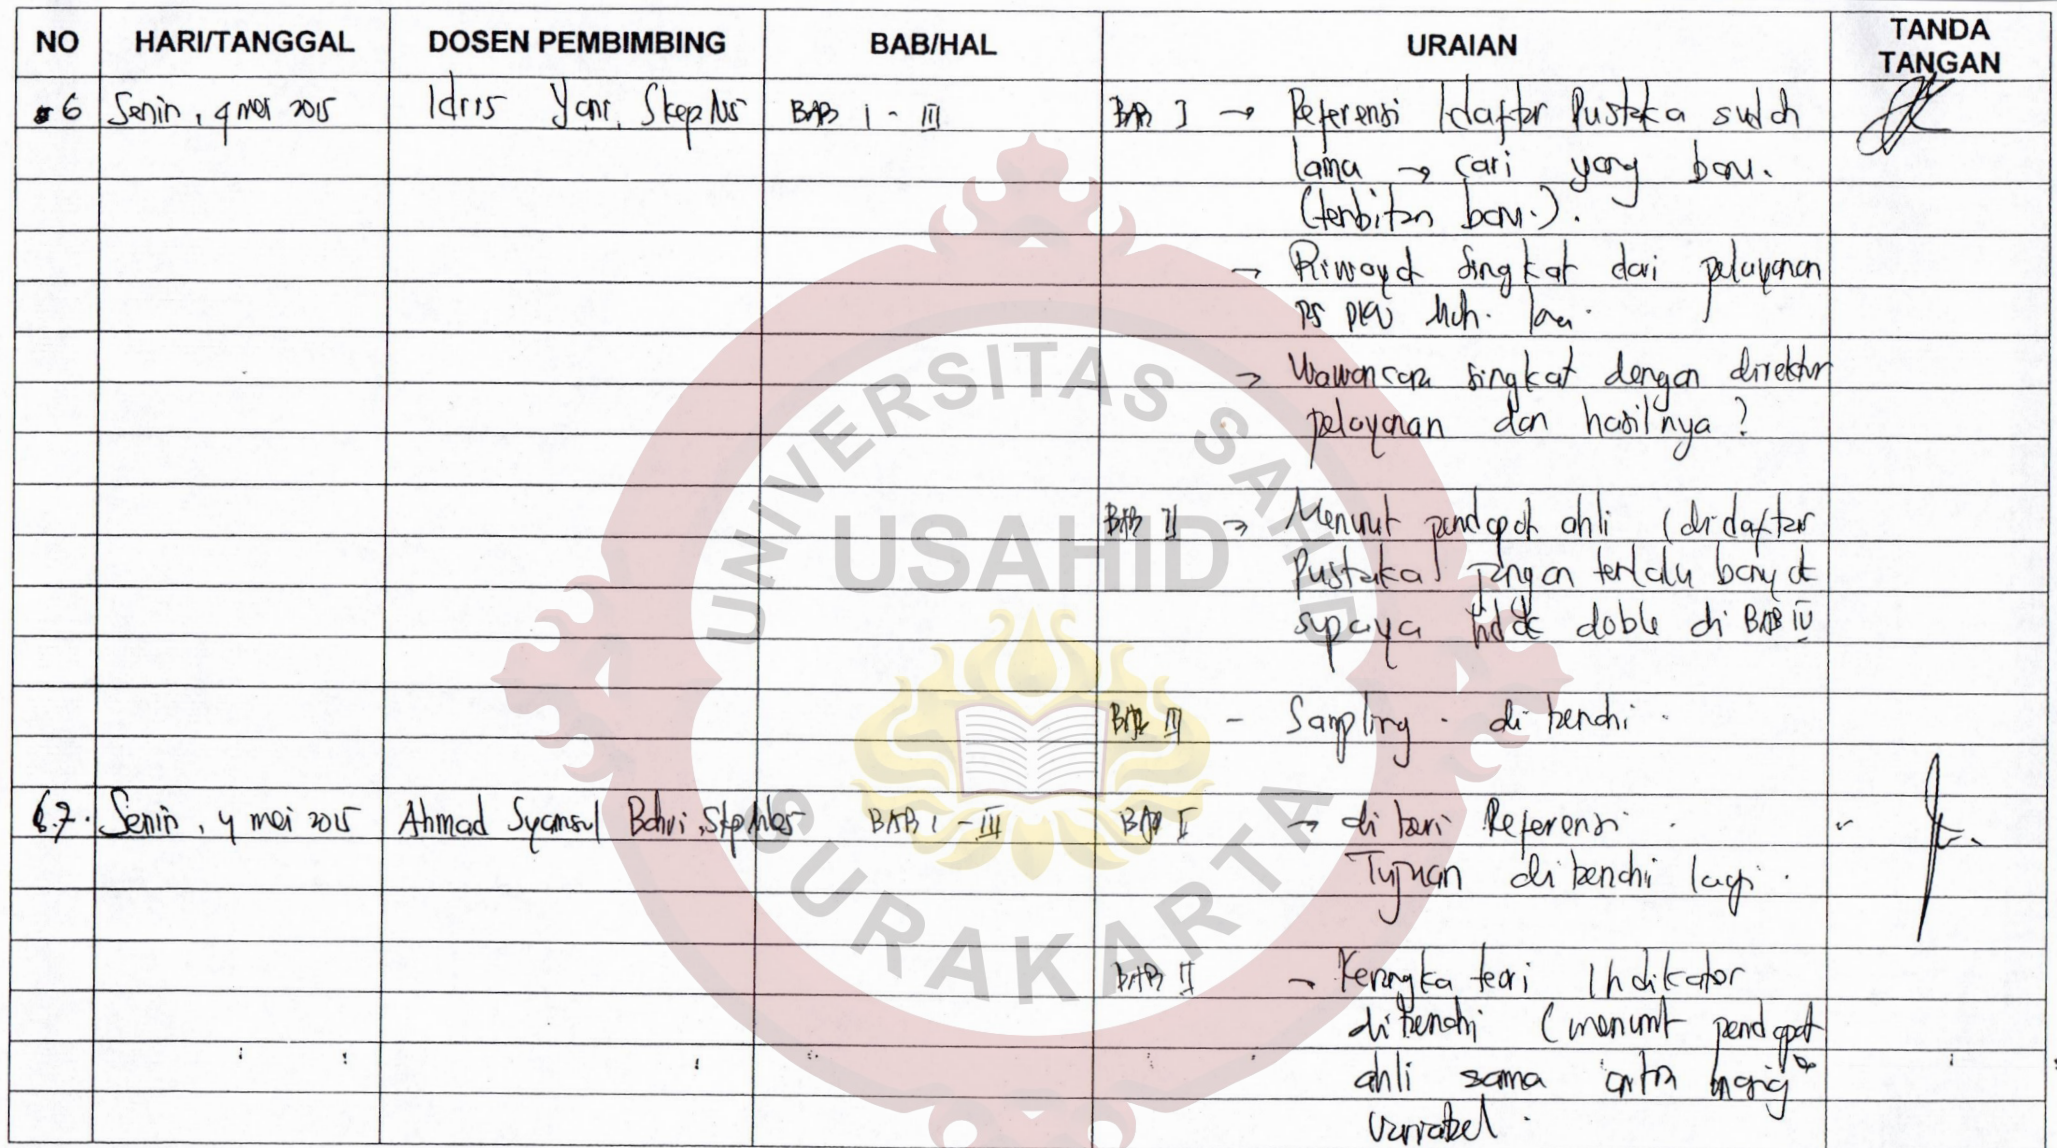 NO HARI/TANGGAL DOSEN PEMBIMBING BAB/HAL URAIAN TANDA TANGAN
6 Senin, 4 mei 2015 Idris Yani, Skep Ns BAB I - III BAB I → Referensi /daftar Pustaka sudah
lama → cari yang baru.
(terbitan baru.).
→ Riwayat singkat dari pelayanan
RS PKU Muh.
→ Wawancara singkat dengan direktur
pelayanan dan hasilnya?
BAB II → Menurut pendapat ahli (di daftar
Pustaka) Jangan terlalu banyak
supaya tidak doble di BAB IV
BAB III - Sampling . di benahi .
7. Senin, 4 mei 2015 Ahmad Syamsul Bahri, Skep Ns BAB I - III BAB I → di beri Referensi .
Tujuan di benahi lagi .
BAB II → Kerangka teori Indikator
di benahi (menurut pendapat
ahli sama antra
variabel .
UNIVERSITAS SAHID
USAHID
SURAKARTA